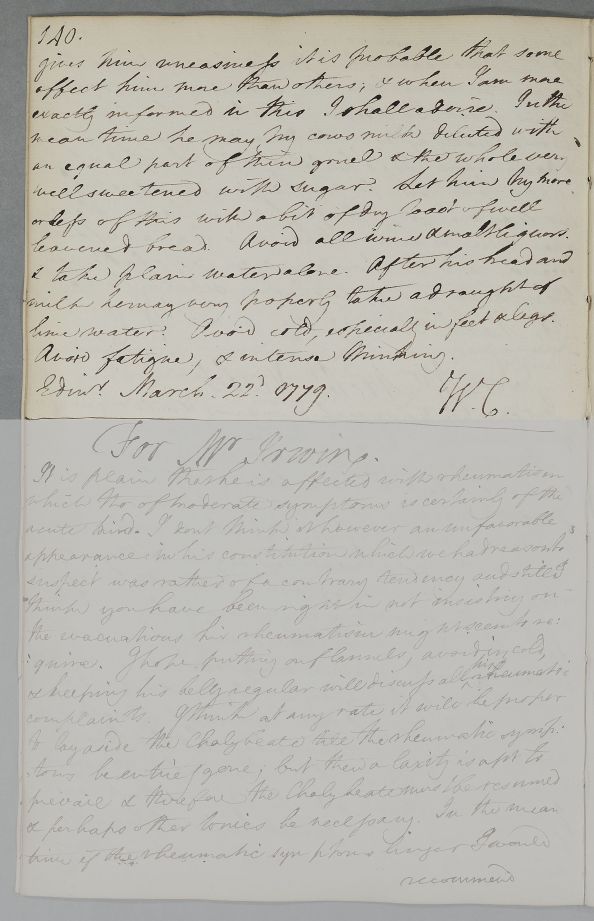 140.
gives him uneasiness it is probable that some
affect him more than others; & when I am more
exactly informed in this I shall advise. In the
mean time he may try cows milk diluted with
an equal part of thin gruel & the whole very
well sweetened with sugar. Let him try more
or less of this with a bit of dry toast of well
leavened bread. Avoid all wine & malt liquors.
& take plain water alone. After his bread and
milk he may very properly take a draught of
lime water. Avoid cold, especially in feet & legs.
Avoid fatigue, & intense thinking.
Edinr. March. 22d. 1779. W.C.
For Mr Irwing.
It is plain that he is affected with rheumatism
which tho of moderate symptoms is certainly of the
acute kind. I dont think it however an unfavorable
appearance in his constitution which we had reason to
suspect was rather of a contrary tendency and still I
think you have been right in not insisting on
the evacuations his rheumatism might seem to re:
quire. I hope, putting on flannels, avoiding cold,
& keeping his belly regular will discuss all his rheumatic
complaints. I think at any rate it will be proper
to lay aside the Chalybeate till the rheumatic symp:
toms be entirely gone; but then a laxity is apt to
prevail & therefore the Chalybeate must be resumed
& perhaps other tonics be necessary. In the mean
time if the rheumatic symptoms linger I would
recommend